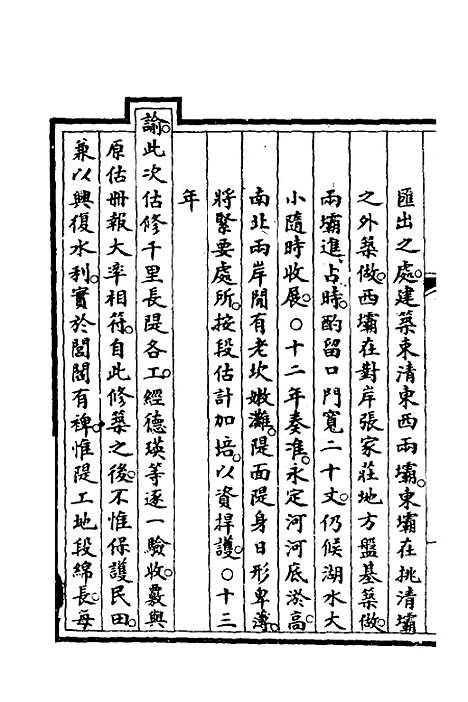 匯出之處。建築東清東西兩壩。東壩在挑清壩
之外築做。西壩在對岸張家莊地方盤基築做。
兩壩進占時。酌留口門寬二十丈。仍候湖水大
小隨時收展。○十二年奏准。永定河河底淤高。
南北兩岸閒有老坎嫩灘。隄面隄身日形卑薄。
將緊要處所。按段估計加培。以資捍護。○十三
年
諭。此次估修千里長隄各工。經德瑛等逐一驗收。覈與
原估冊報大率相符。自此修築之後。不惟保護民田。
兼以興復水利。實於閭閻有裨。惟隄工地段綿長。每